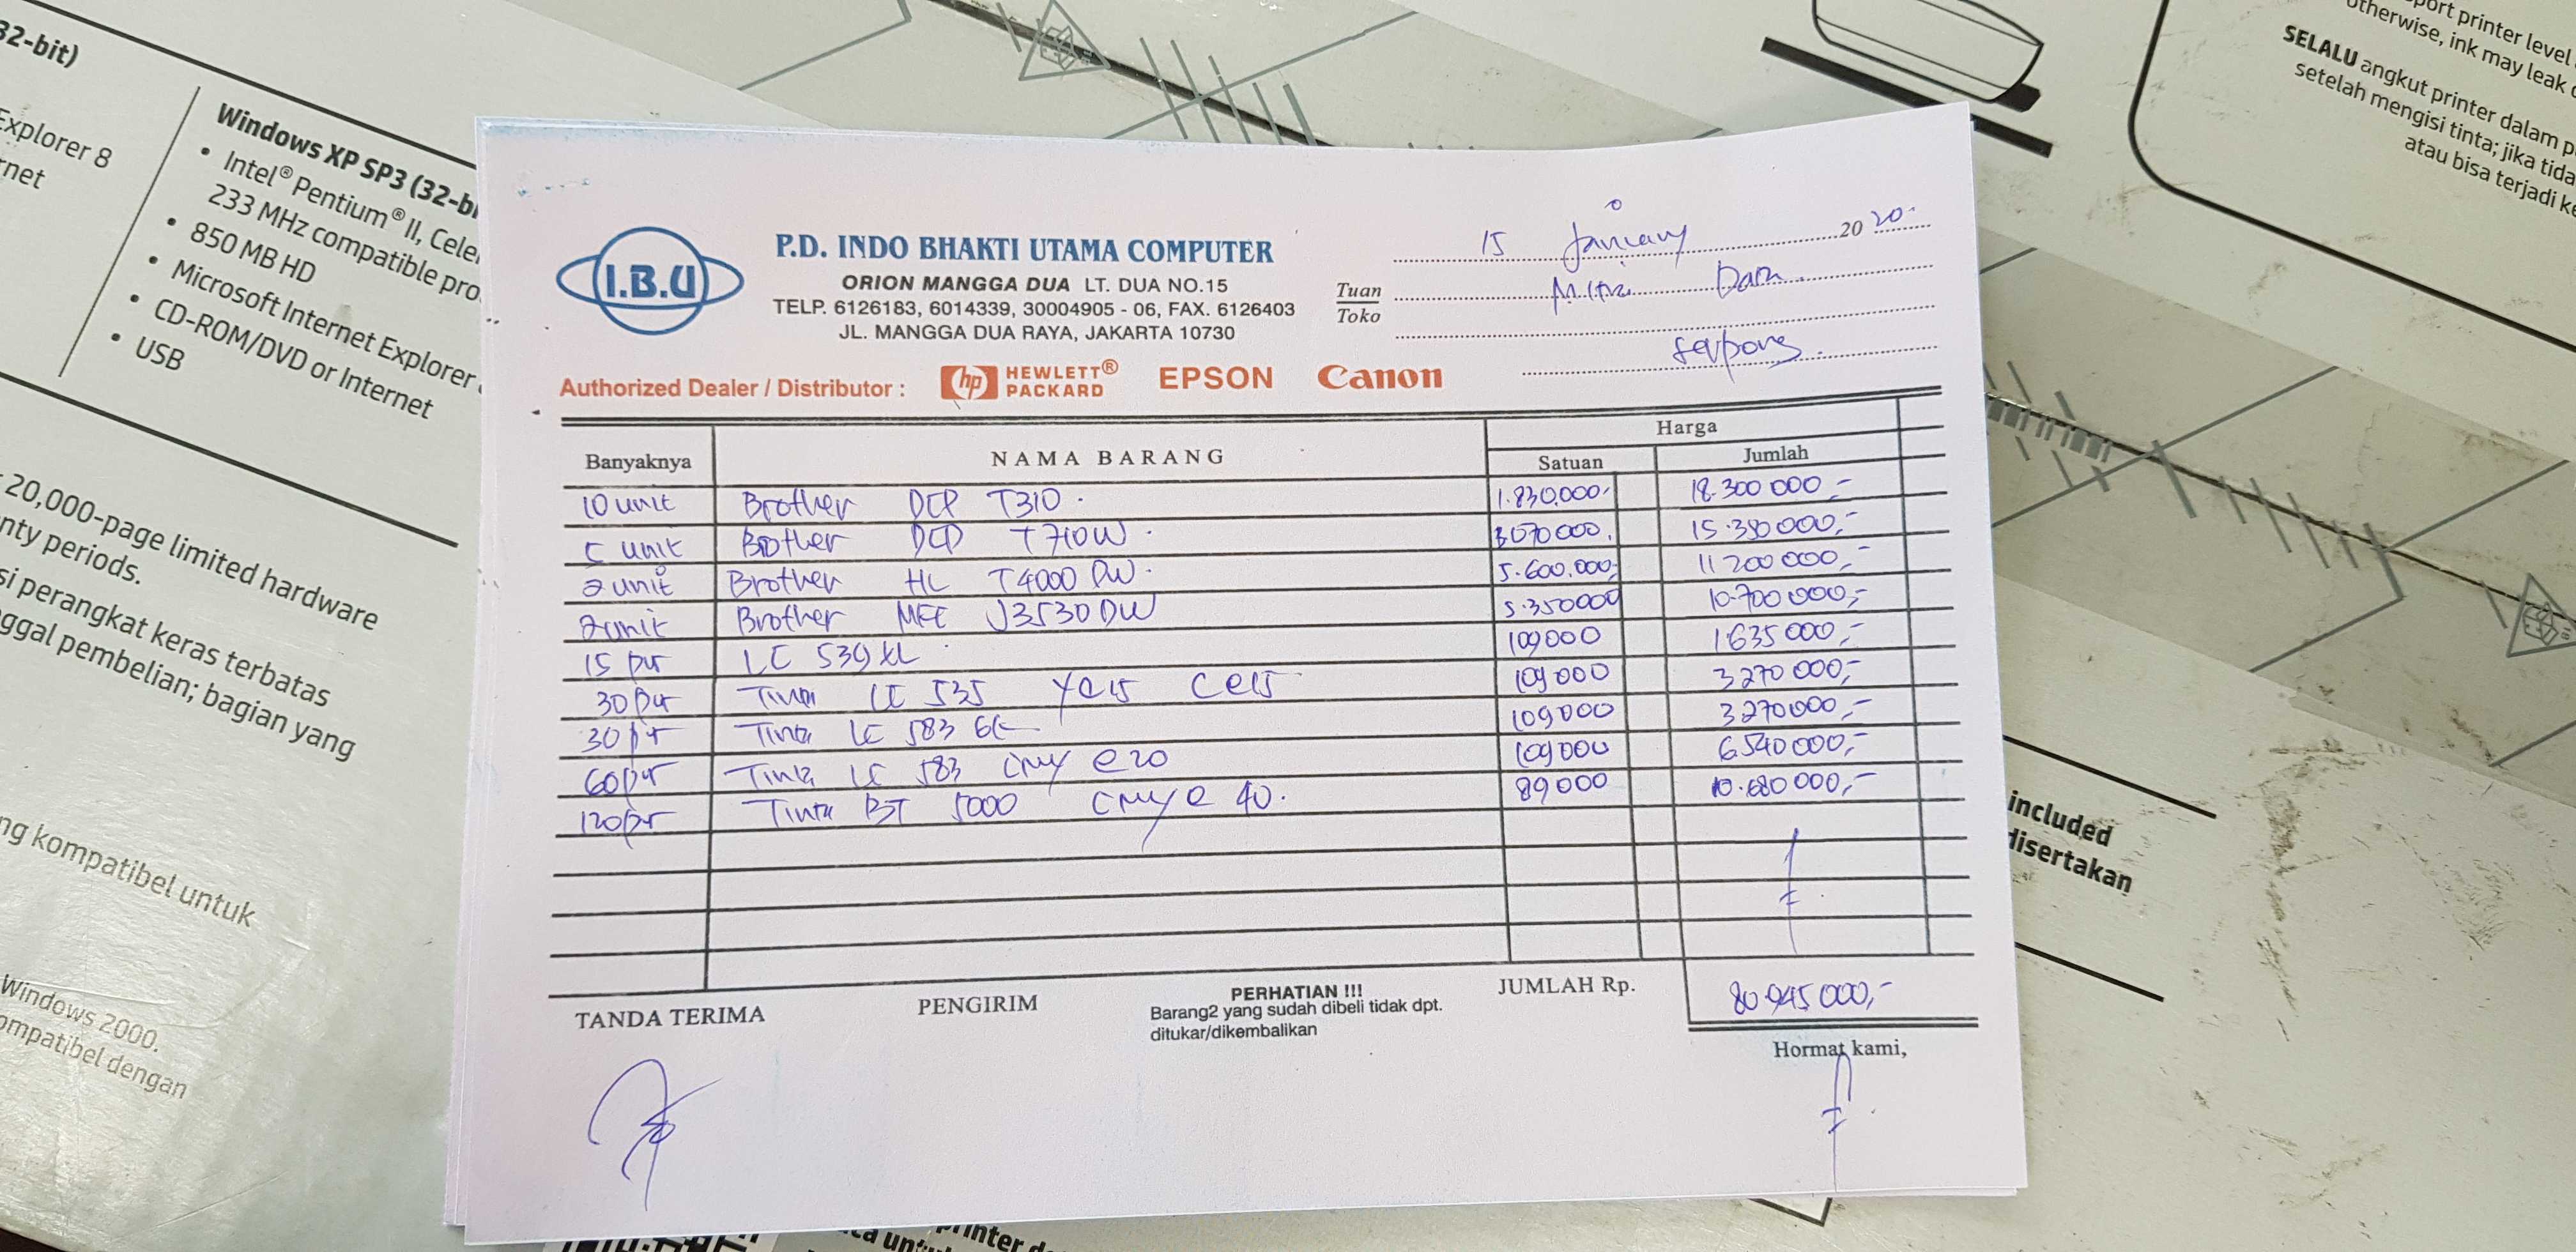 32-bit)
Explorer 8
rnet
Windows XP SP3 (32-bi
• Intel® Pentium® II, Cele
233 MHz compatible pro
• 850 MB HD
• Microsoft Internet Explorer
• CD-ROM/DVD or Internet
• USB
20,000-page limited hardware
nty periods.
si perangkat keras terbatas
ggal pembelian; bagian yang
ng kompatibel untuk
Windows 2000.
ompatibel dengan
port printer level
otherwise, ink may leak
SELALU angkut printer dalam p
setelah mengisi tinta; jika tida
atau bisa terjadi ke
included
disertakan
I.B.U
P.D. INDO BHAKTI UTAMA COMPUTER
ORION MANGGA DUA LT. DUA NO.15
TELP. 6126183, 6014339, 30004905 - 06, FAX. 6126403
JL. MANGGA DUA RAYA, JAKARTA 10730
15 January 2020
Tuan
Toko
Mitra
Serpong
Authorized Dealer / Distributor : hp HEWLETT® PACKARD EPSON Canon
Banyaknya NAMA BARANG Harga
Satuan Jumlah
10 unit Brother DCP T310 1.830.000,- 18.300 000,-
5 unit Brother DCP T710W 3070000, 15.350 000,-
2 unit Brother HL T4000 DW 5.600.000,- 11 200 000,-
2 unit Brother MFC J3530 DW 5.350000 10.700 000,-
15 LC 539 XL 109000 1635 000,-
30 Tinta LC 535 109000 3270 000,-
30 Tinta LC 583 BK 109000 3270000,-
60 Tinta LC 583 CMY @ 20 109000 6540 000,-
120 Tinta BT 5000 CMY @ 40. 89000 10.680 000,-
TANDA TERIMA PENGIRIM
PERHATIAN !!!
Barang2 yang sudah dibeli tidak dpt.
ditukar/dikembalikan
JUMLAH Rp. 80.945 000,-
Hormat kami,